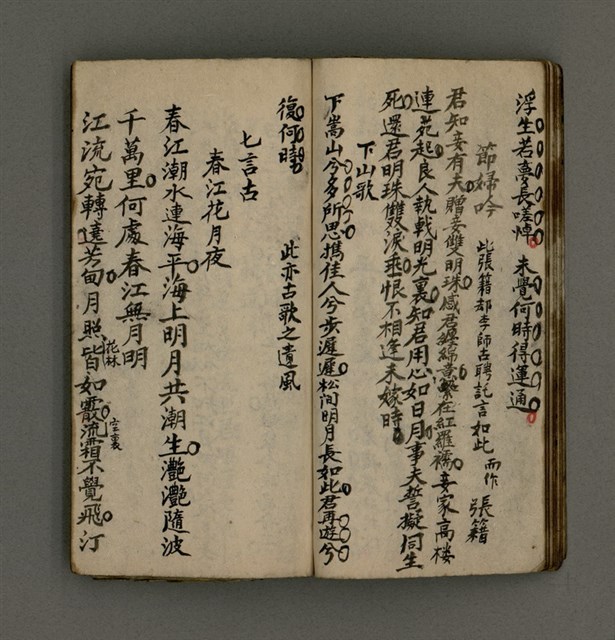 浮生若夢長嗟悼　未覺何時得運通
節婦吟　此張籍却李師古聘託言如此而作　張籍
君知妾有夫贈妾雙明珠感君纏綿意繫在紅羅襦妾家高樓
連苑起良人執戟明光裏知君用心如日月事夫誓擬同生
死還君明珠雙淚垂恨不相逢未嫁時
下山歌
下嵩山兮多所思携佳人兮步遲遲松间明月長如此君再遊兮
復何時　此亦古歌之遺風
七言古
春江花月夜
春江潮水連海平海上明月共潮生灩灩隨波
千萬里何處春江無月明
江流宛轉遶芳甸月照花林皆如霰空裏流霜不覺飛汀